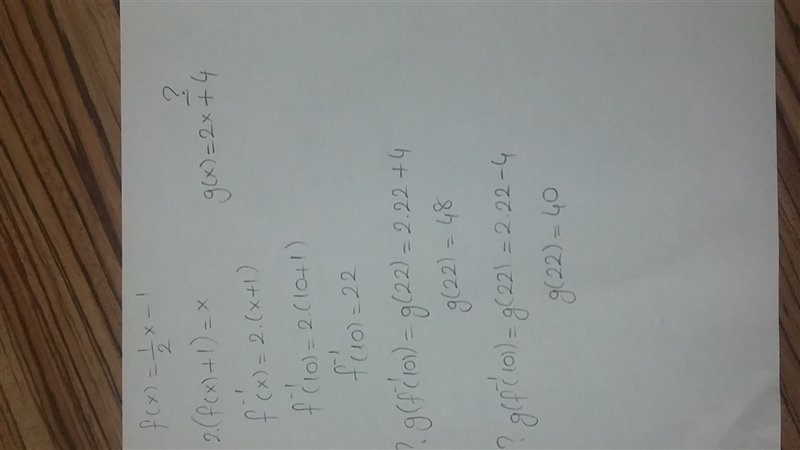 f(x) = 1/2 x - 1
2.(f(x)+1) = x
g(x) = 2x ± 4 ?
f⁻¹(x) = 2.(x+1)
f⁻¹(10) = 2.(10+1)
f⁻¹(10) = 22
? g(f⁻¹(10)) = g(22) = 2.22+4
g(22) = 48
? g(f⁻¹(10)) = g(22) = 2.22-4
g(22) = 40